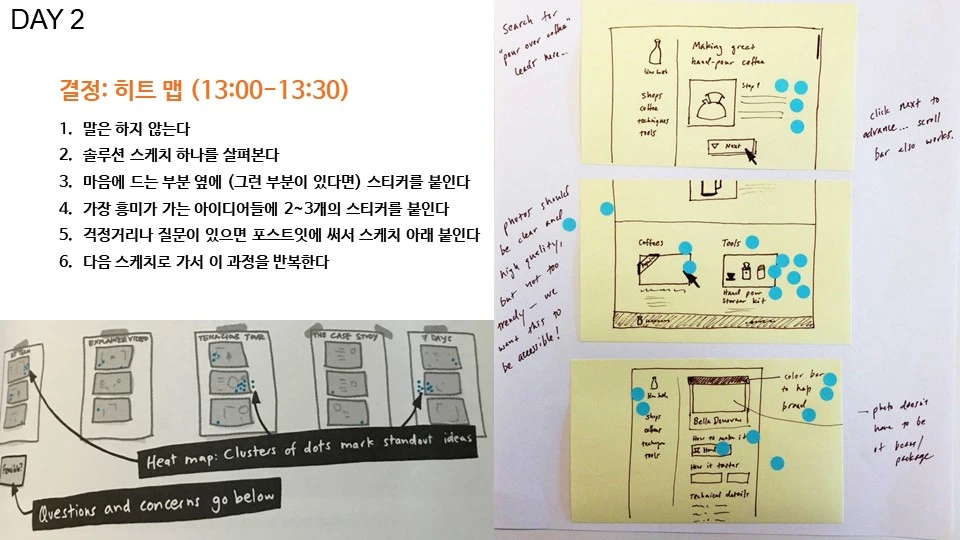 DAY 2
결정: 히트 맵 (13:00-13:30)
1. 말은 하지 않는다
2. 솔루션 스케치 하나를 살펴본다
3. 마음에 드는 부분 옆에 (그런 부분이 있다면) 스티커를 붙인다
4. 가장 흥미가 가는 아이디어들에 2~3개의 스티커를 붙인다
5. 걱정거리나 질문이 있으면 포스트잇에 써서 스케치 아래 붙인다
6. 다음 스케치로 가서 이 과정을 반복한다
EXPLAINER VIDEO
TENACIOUS TOUR
THE CASE STUDY
7 DAYS
Heat map: Clusters of dots mark standout ideas
Feasible?
Questions and concerns go below
Search for
"pour over coffee"
leads here...
Making great
hand-pour coffee
blue bottle
Shops
coffee
techniques
tools
Step 1
Next
click next to
advance... scroll
bar also works.
photos should
be clear and
high quality,
but not too
trendy – we
want this to
be accessible!
Coffees
Tools
Hand pour
Starter kit
blue bottle
Shops
coffees
techniques
tools
Bella Donovan
How to make it
How it tastes
Technical details
color bar
to help
brand
photo doesn't
have to be
of bean/
package